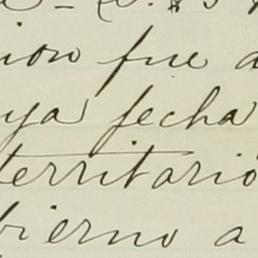 ion fue a
ya fecha
territorio
bierno a